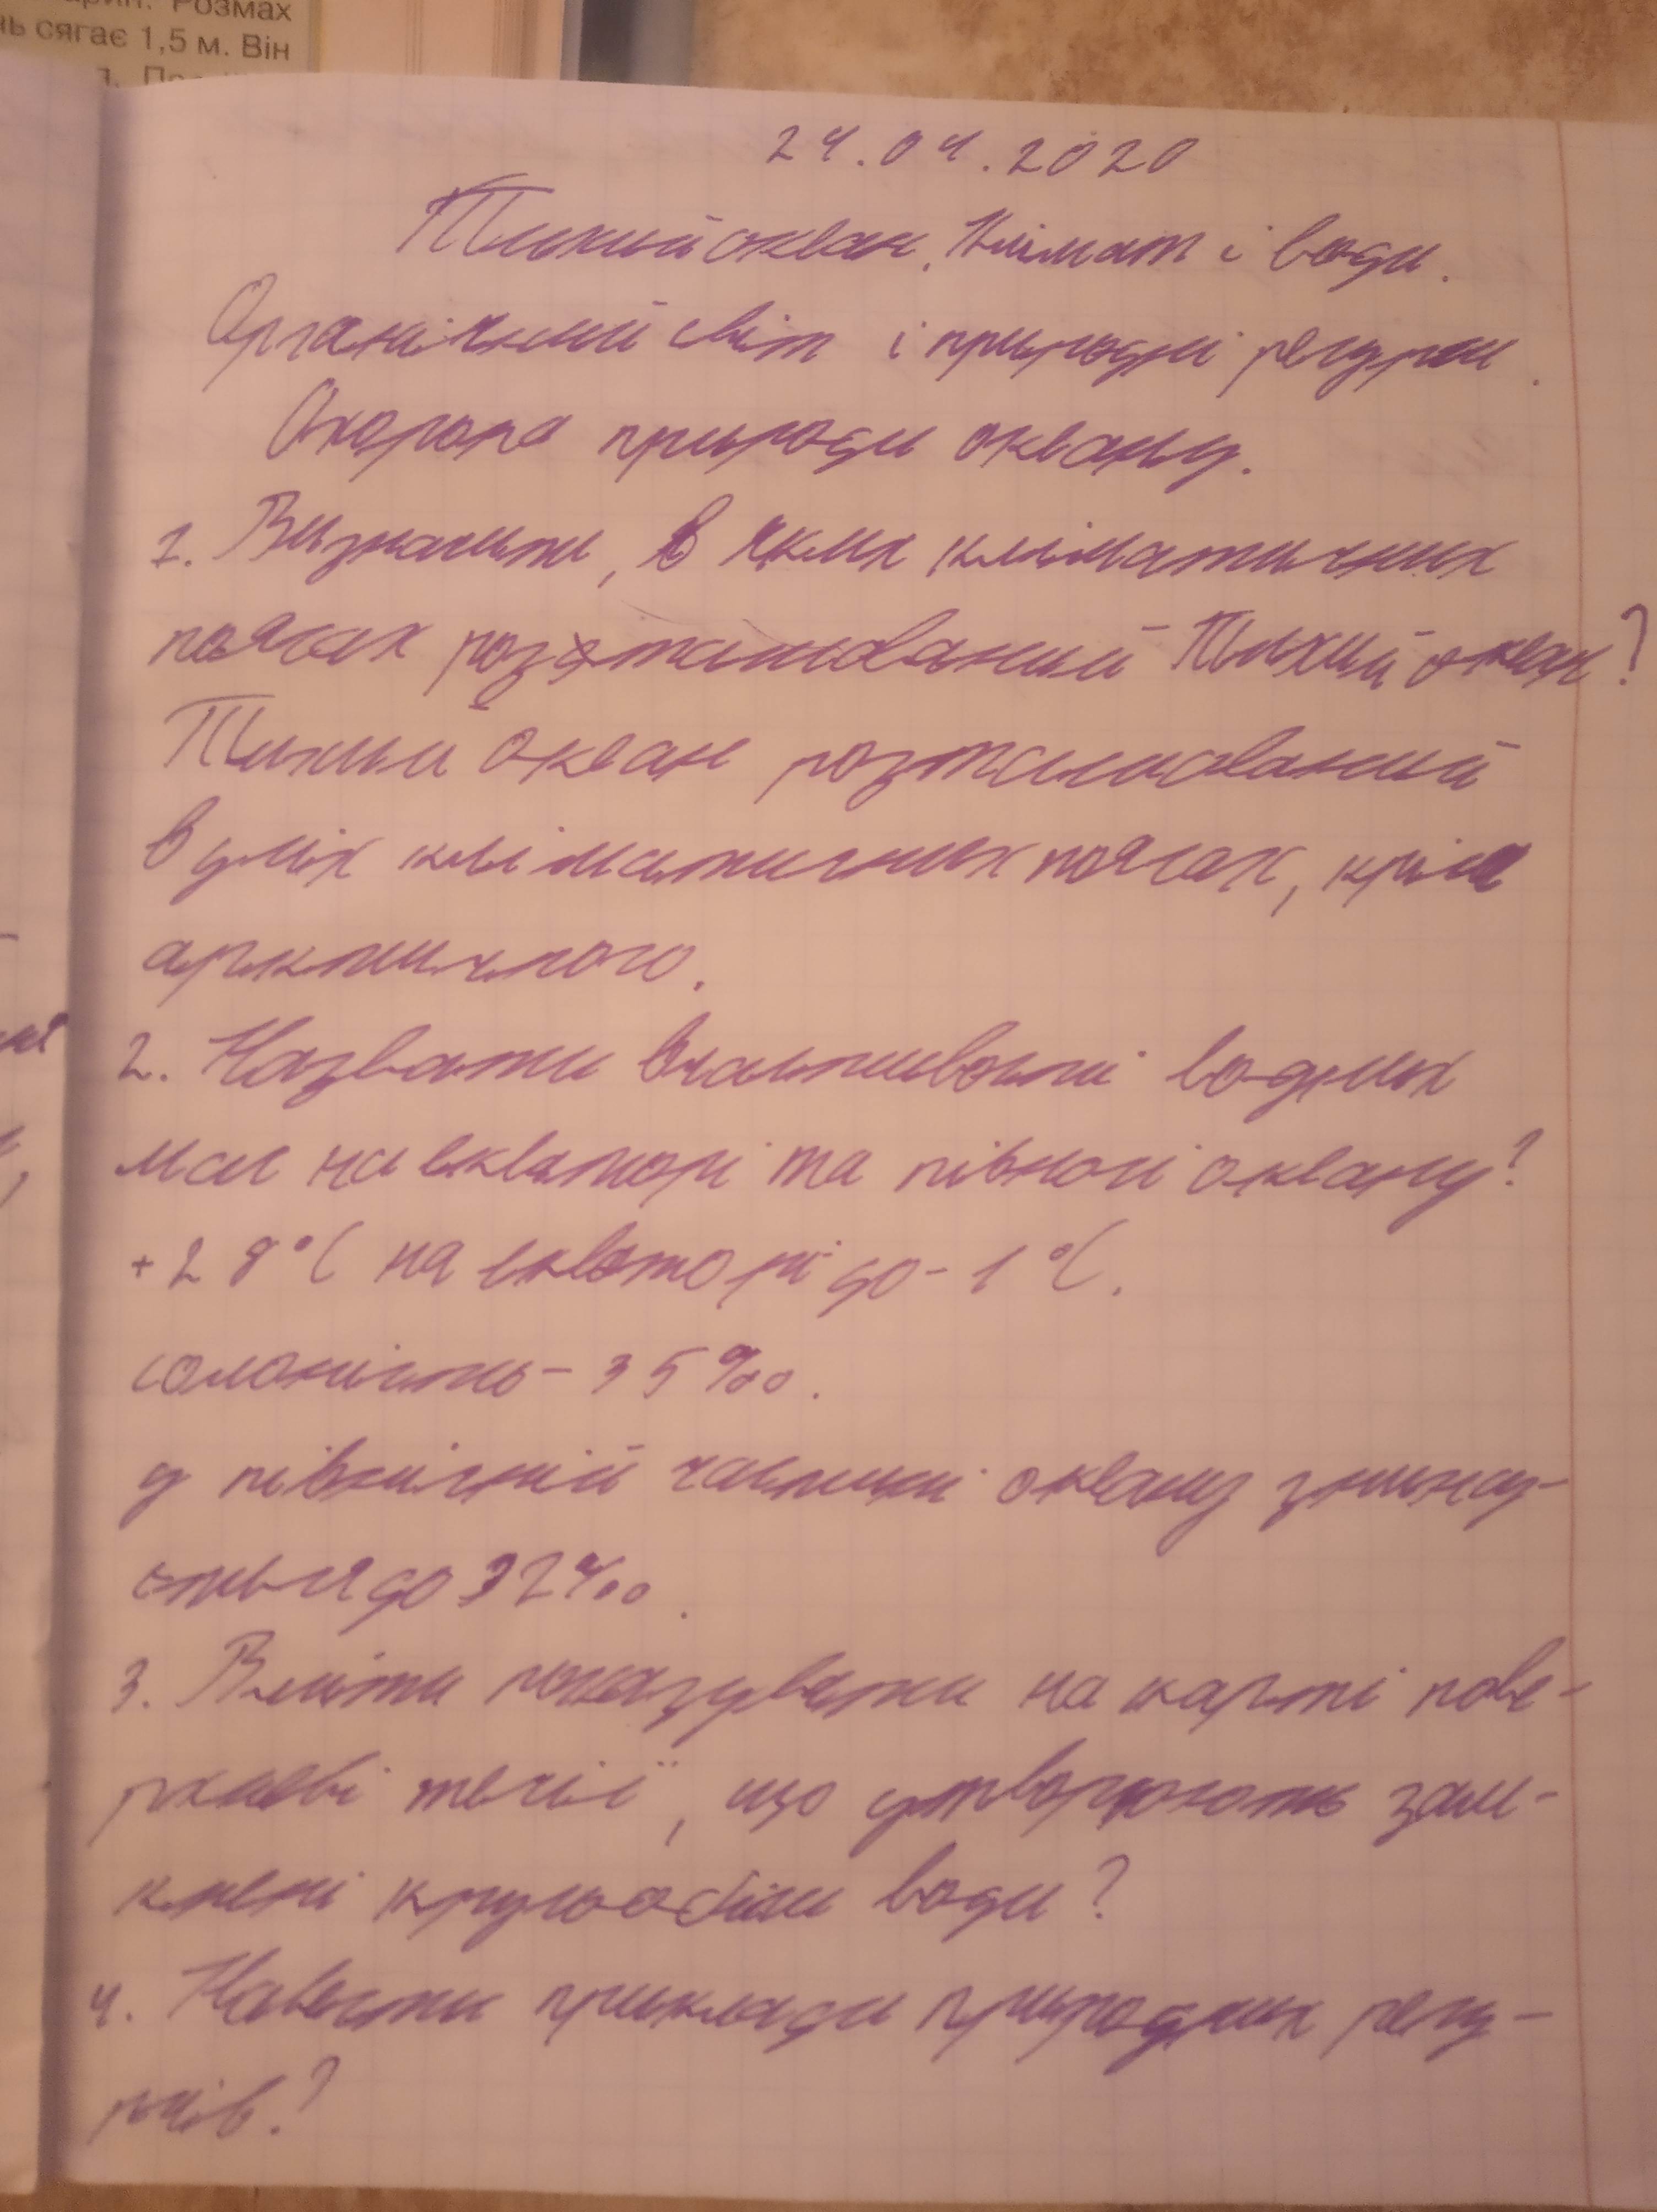 арин. Розмах
нь сягає 1,5 м. Він
24.04.2020
Тихий океан. Клімат і води.
Органічний світ і природні ресурси.
Охорона природи океану.
1. Визначити, в яких кліматичних
поясах розташований Тихий океан?
Тихий океан розташований
в усіх кліматичних поясах, крім
арктичного.
2. Назвати властивості водних
мас на екваторі та півночі океану?
+28°С на екваторі до -1°С.
солоність - 35‰.
у північній частині океану знижу-
ється до 32‰.
3. Вміти показувати на карті пове-
рхневі течії, що утворюють зам-
кнені кругообіги води?
4. Навести приклади природних ресу-
рсів?